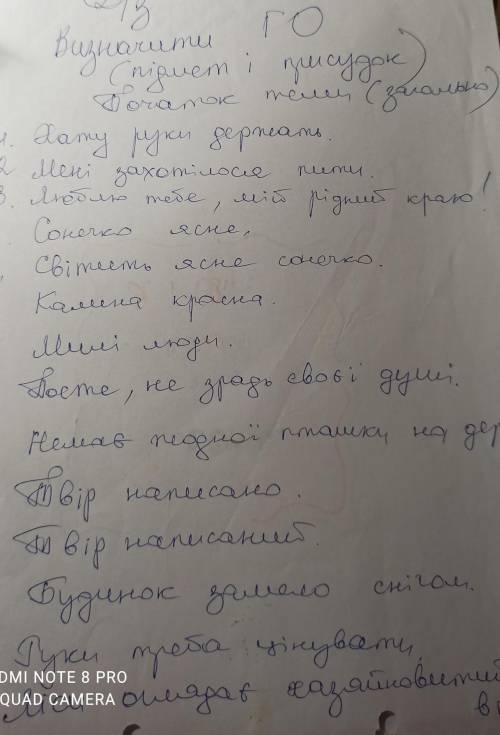 Д/з
ГО
Визначити
(підмет і присудок)
Початок теми (загально)
1. Хату руки держать.
2 Мені захотілося пити.
3. Люблю тебе, мій рідний краю!
Сонечко ясне,
Світить ясне сонечко.
Калина красна.
Милі люди.
Поете, не зрадь своєї душі.
Немає жодної пташки на дер
Твір написано.
Твір написаний.
Будинок замело снігом.
Руки треба цінувати.
Ліси оглядає хазяйновитий
DMI NOTE 8 PRO
QUAD CAMERA